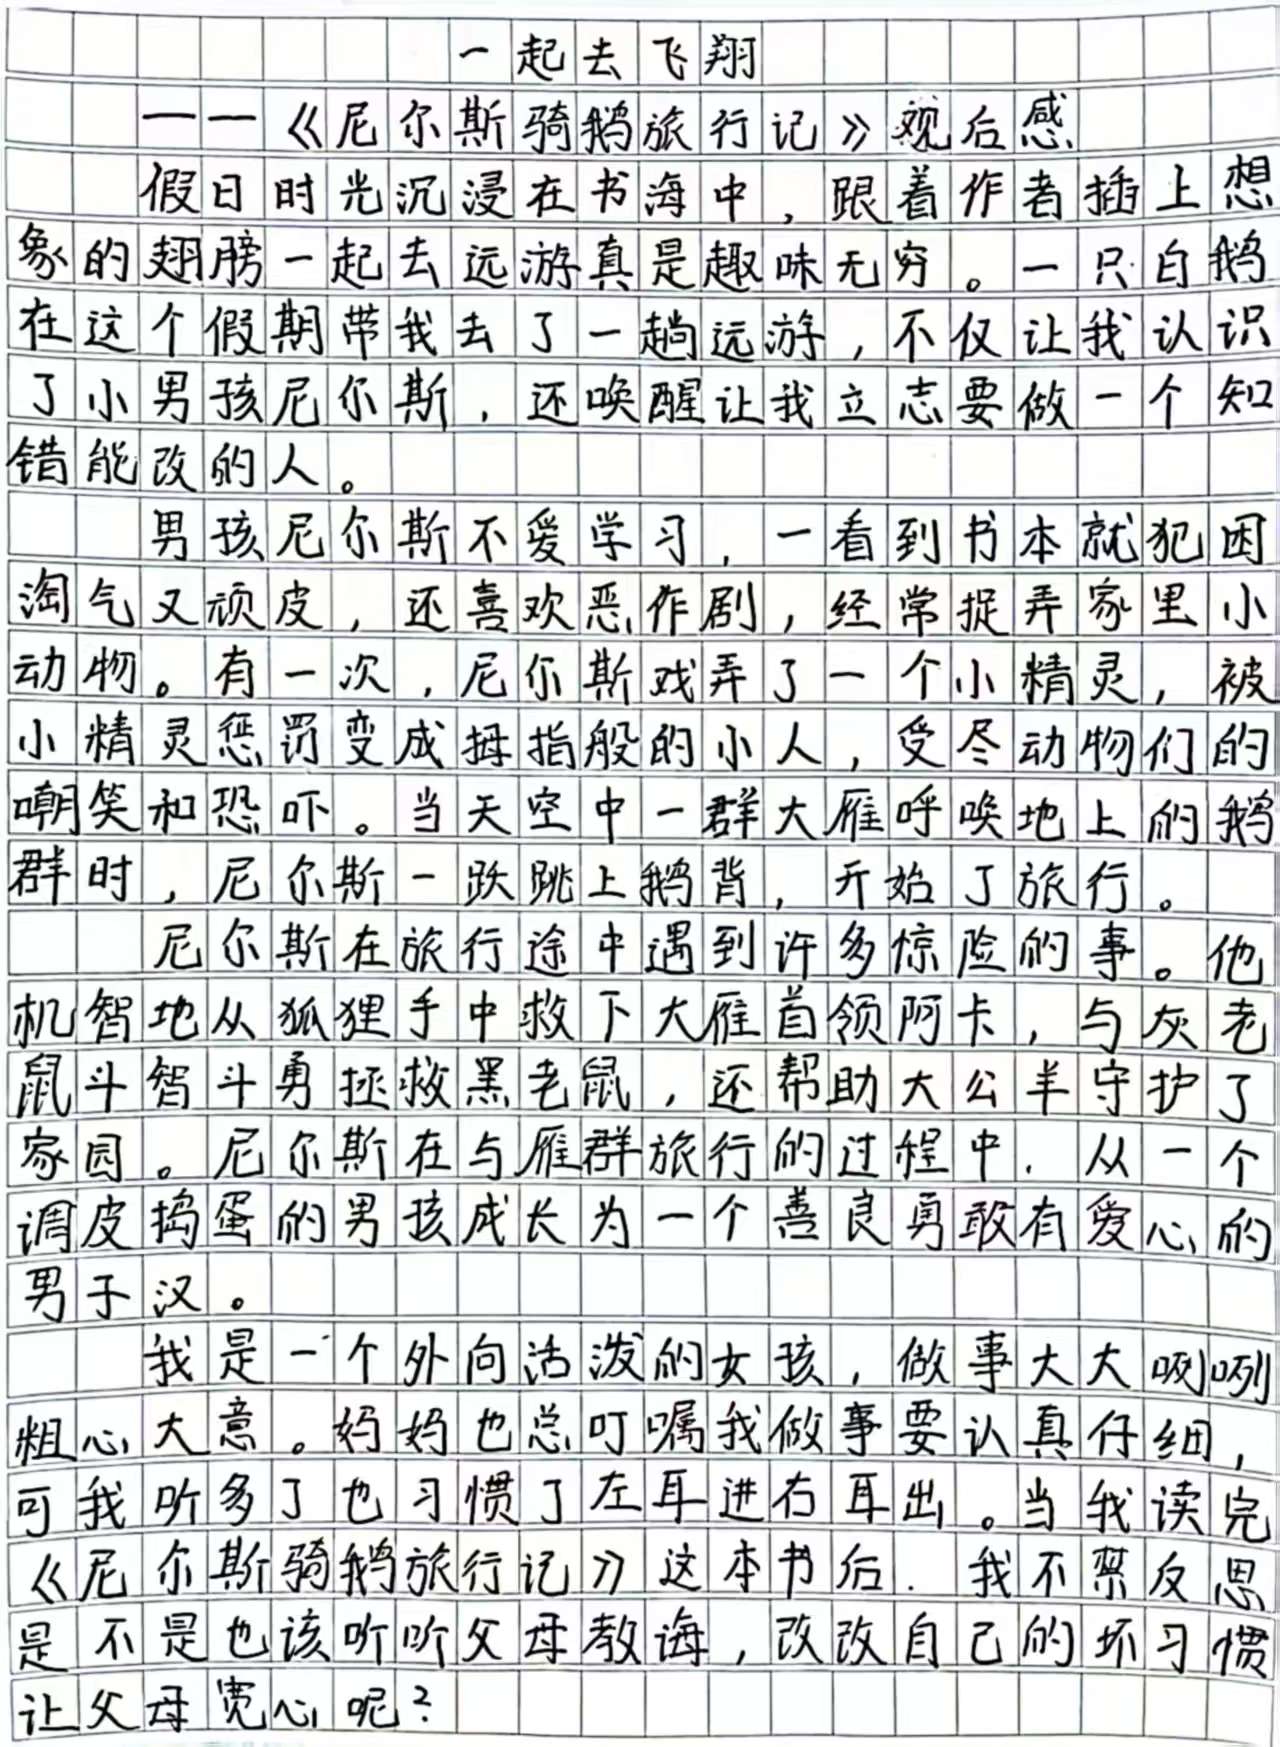 一起去飞翔
——《尼尔斯骑鹅旅行记》观后感
假日时光沉浸在书海中，跟着作者插上想
象的翅膀一起去远游真是趣味无穷。一只白鹅
在这个假期带我去了一趟远游，不仅让我认识
了小男孩尼尔斯，还唤醒让我立志要做一个知
错能改的人。
男孩尼尔斯不爱学习，一看到书本就犯困
淘气又顽皮，还喜欢恶作剧，经常捉弄家里小
动物。有一次，尼尔斯戏弄了一个小精灵，被
小精灵惩罚变成拇指般的小人，受尽动物们的
嘲笑和恐吓。当天空中一群大雁呼唤地上的鹅
群时，尼尔斯一跃跳上鹅背，开始了旅行。
尼尔斯在旅行途中遇到许多惊险的事。他
机智地从狐狸手中救下大雁首领阿卡，与灰老
鼠斗智斗勇拯救黑老鼠，还帮助大公羊守护了
家园。尼尔斯在与雁群旅行的过程中，从一个
调皮捣蛋的男孩成长为一个善良勇敢有爱心的
男子汉。
我是一个外向活泼的女孩，做事大大咧咧
粗心大意。妈妈也总叮嘱我做事要认真仔细，
可我听多了也习惯了左耳进右耳出。当我读完
《尼尔斯骑鹅旅行记》这本书后．我不禁反思
是不是也该听听父母教诲，改改自己的坏习惯
让父母宽心呢？